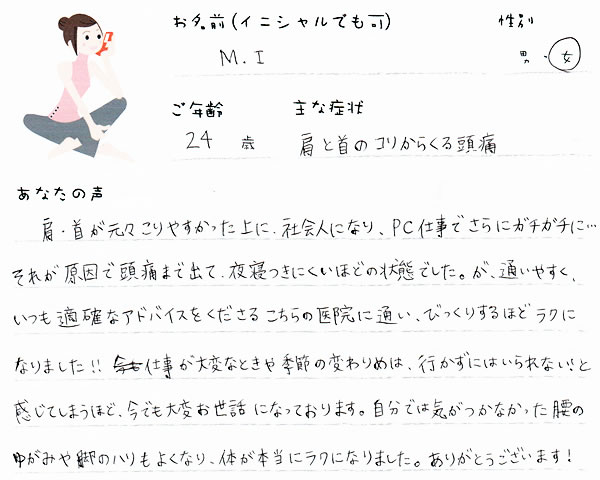 お名前(イニシャルでも可) 性別
M.I 男・女
ご年齢 主な症状
24 歳 肩と首のコリからくる頭痛
あなたの声
肩・首が元々こりやすかった上に、社会人になり、PC仕事でさらにガチガチに…
それが原因で頭痛まで出て、夜寝つきにくいほどの状態でした。が、通いやすく、
いつも適確なアドバイスをくださるこちらの医院に通い、びっくりするほどラクに
なりました!!仕事が大変なときや季節の変わりめは、行かずにはいられない!と
感じてしまうほど、今でも大変お世話になっております。自分では気がつかなかった腰の
ゆがみや脚のハリもよくなり、体が本当にラクになりました。ありがとうございます!